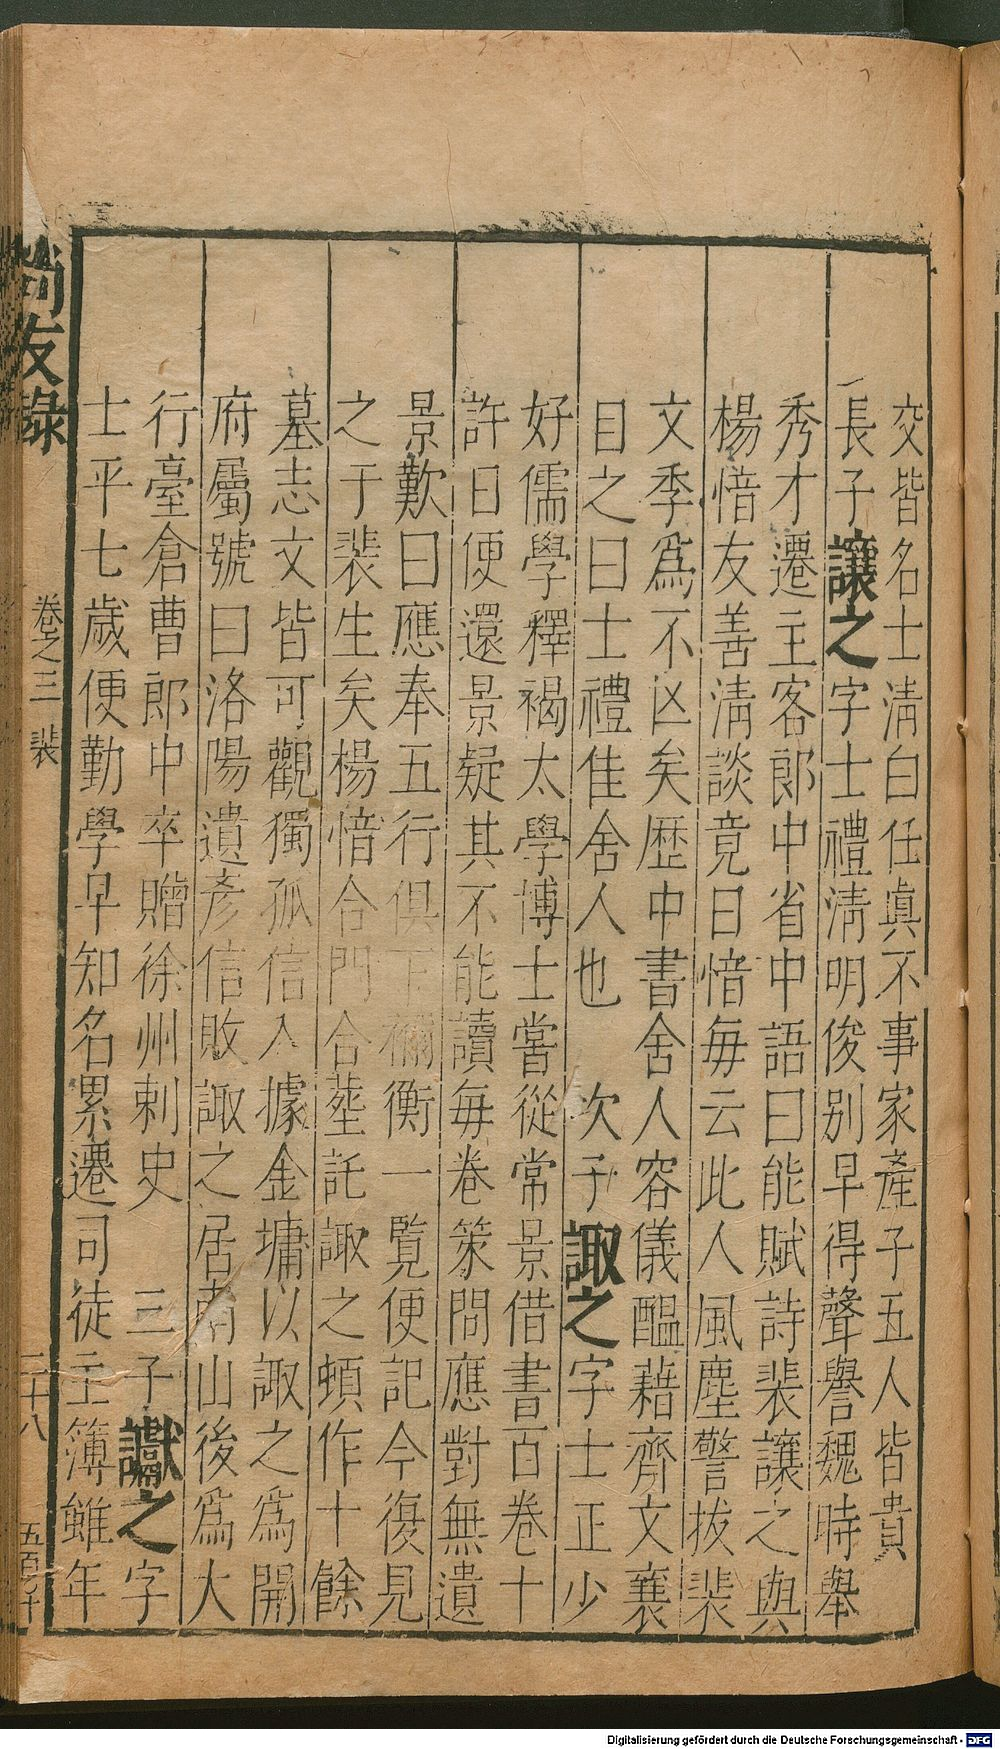 交皆名士淸白任眞不事家產子五人皆貴
長子讓之字士禮淸明俊别早得聲譽魏時舉
秀才遷主客郎中省中語曰能賦詩裴讓之與
楊愔友善淸談竟日愔每云此人風塵警拔裴
文季爲不凶矣歴中書舍人容儀醞藉齊文襄
目之曰士禮佳舍人也 次子諏之字士正少
好儒學釋褐太學博士嘗從常景借書百卷十
許日便還景疑其不能讀每卷策問應對無遺
景歎曰應奉五行俱下禰衡一覽便記今復見
之于裴生矣楊愔合門合塟託諏之頓作十餘
墓志文皆可觀獨孤信入據金墉以諏之爲開
府屬號曰洛陽遺彥信敗諏之居南山後爲大
行臺倉曹郎中卒贈徐州刺史 三子讞之字
士平七歲便勤學早知名累遷司徒主簿雖年
尚友錄 卷之三 裴 三十八
Digitalisierung gefördert durch die Deutsche Forschungsgemeinschaft - DFG